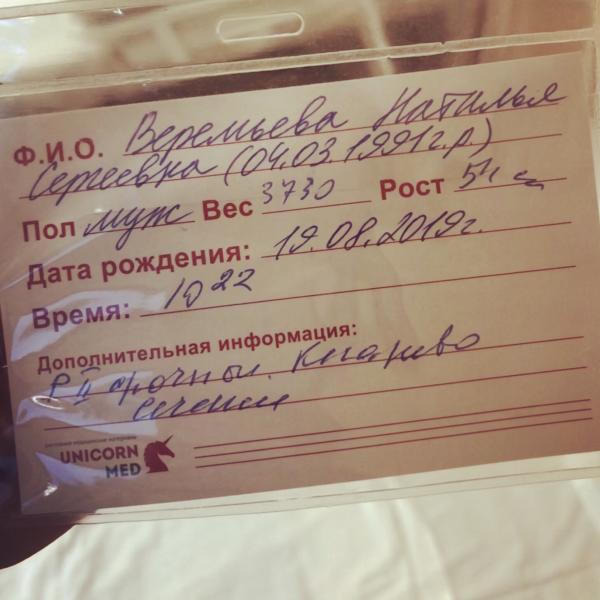 Ф.И.О. Веремьева Наталья
Сергеевна (04.03.1991г.р.)
Пол муж Вес 3730 Рост 54 см
Дата рождения: 19.08.2019г.
Время: 10 22
Дополнительная информация:
Р II срочные. Кесарево
сечение
UNICORN
MED